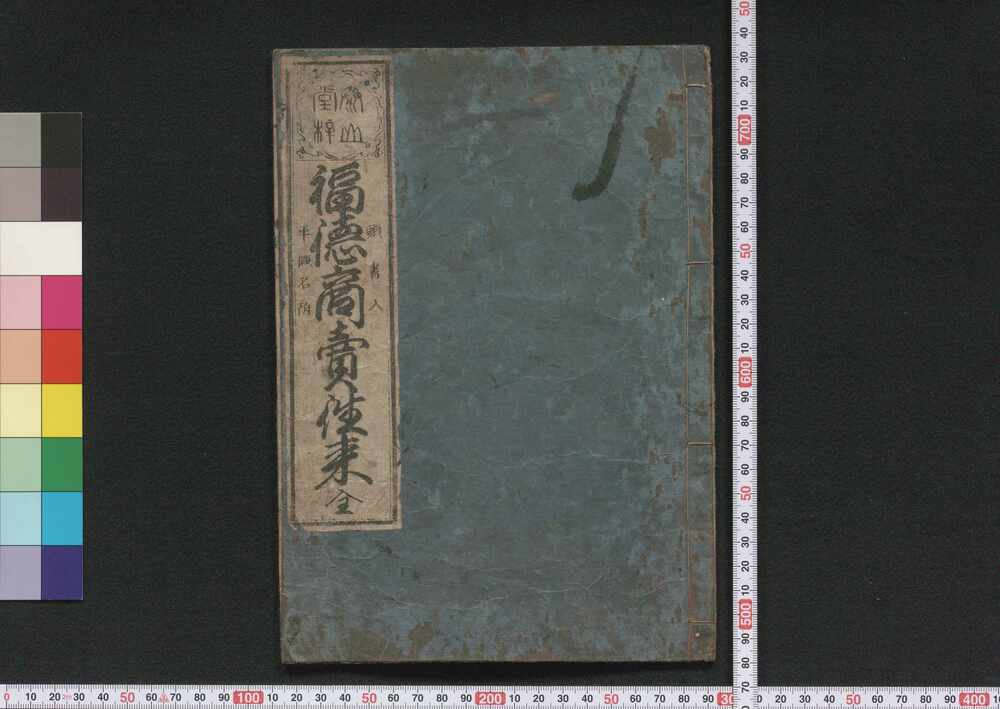 山
堂梓
頭書入
福徳商賣往来 全
0 10 20 30 40 50 60 70 80 90 100 10 20 30 40 50 60 70 80 90 200 10 20 30 40 50 60 70 80 90 30
20 30 40 50 60 70 80 90 400
50 40 30 20 10 700 90 80 70 60 50 40 30 20 10 600 90 80 70 60 50 40 30 20 10 500 90 80 70